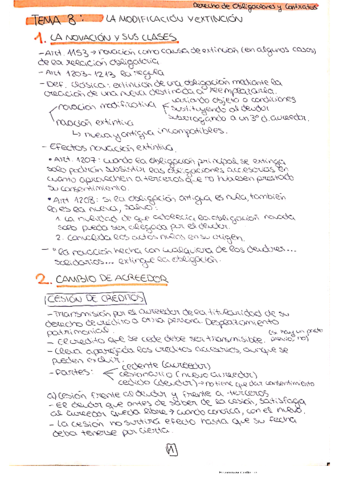 Derecho de Obligaciones y Contratos
TEMA 8: LA MODIFICACIÓN Y EXTINCIÓN
1. LA NOVACIÓN Y SUS CLASES
- Art 1153 → novación como causa de extinción (en algunos casos)
de la relación obligatoria
- Art 1203-1213 la regula
- Def. clásica: extinción de una obligación mediante la
creación de una nueva destinada a reemplazarla.
novación modificativa
variando objeto o condiciones
sustituyendo al deudor
subrogando a un 3º d. acreedor.
novación extintiva
↳ nueva y antigua incompatibles.
- Efectos novación extintiva.
• Art. 1207: cuando la obligación principal se extinga
solo podrán subsistir las obligaciones accesorias en
cuanto aprovechen a terceros que no hubiesen prestado
su consentimiento.
• Art 1208: Si la obligación antigua es nula, también
lo es la nueva, salvo:
1. la nulidad de que adolecía la obligación novada
solo pueda ser alegada por el deudor.
2. convalida los actos nulos en su origen.
- "la novación hecha con cualquiera de los deudores...
solidarios... extingue la obligación.
2. CAMBIO DE ACREEDOR
CESIÓN DE CRÉDITOS
- Transmisión por el acreedor de la titularidad de su
derecho de crédito a otra persona. Desplazamiento
patrimonial.
- El crédito que se cede debe ser transmisible.
- Lleva aparejada los créditos accesorios, aunque se
pueden excluir.
- Partes:
cedente (acreedor)
cesionario (nuevo acreedor)
cedido (deudor) → no tiene que dar consentimiento
a) Cesión frente al deudor y frente a terceros
- El deudor que antes de saber de la cesión, satisfaga
al acreedor queda libre → cuando conozca, con el nuevo.
- La cesión no surtirá efecto hasta que su fecha
deba tenerse por cierta.
1